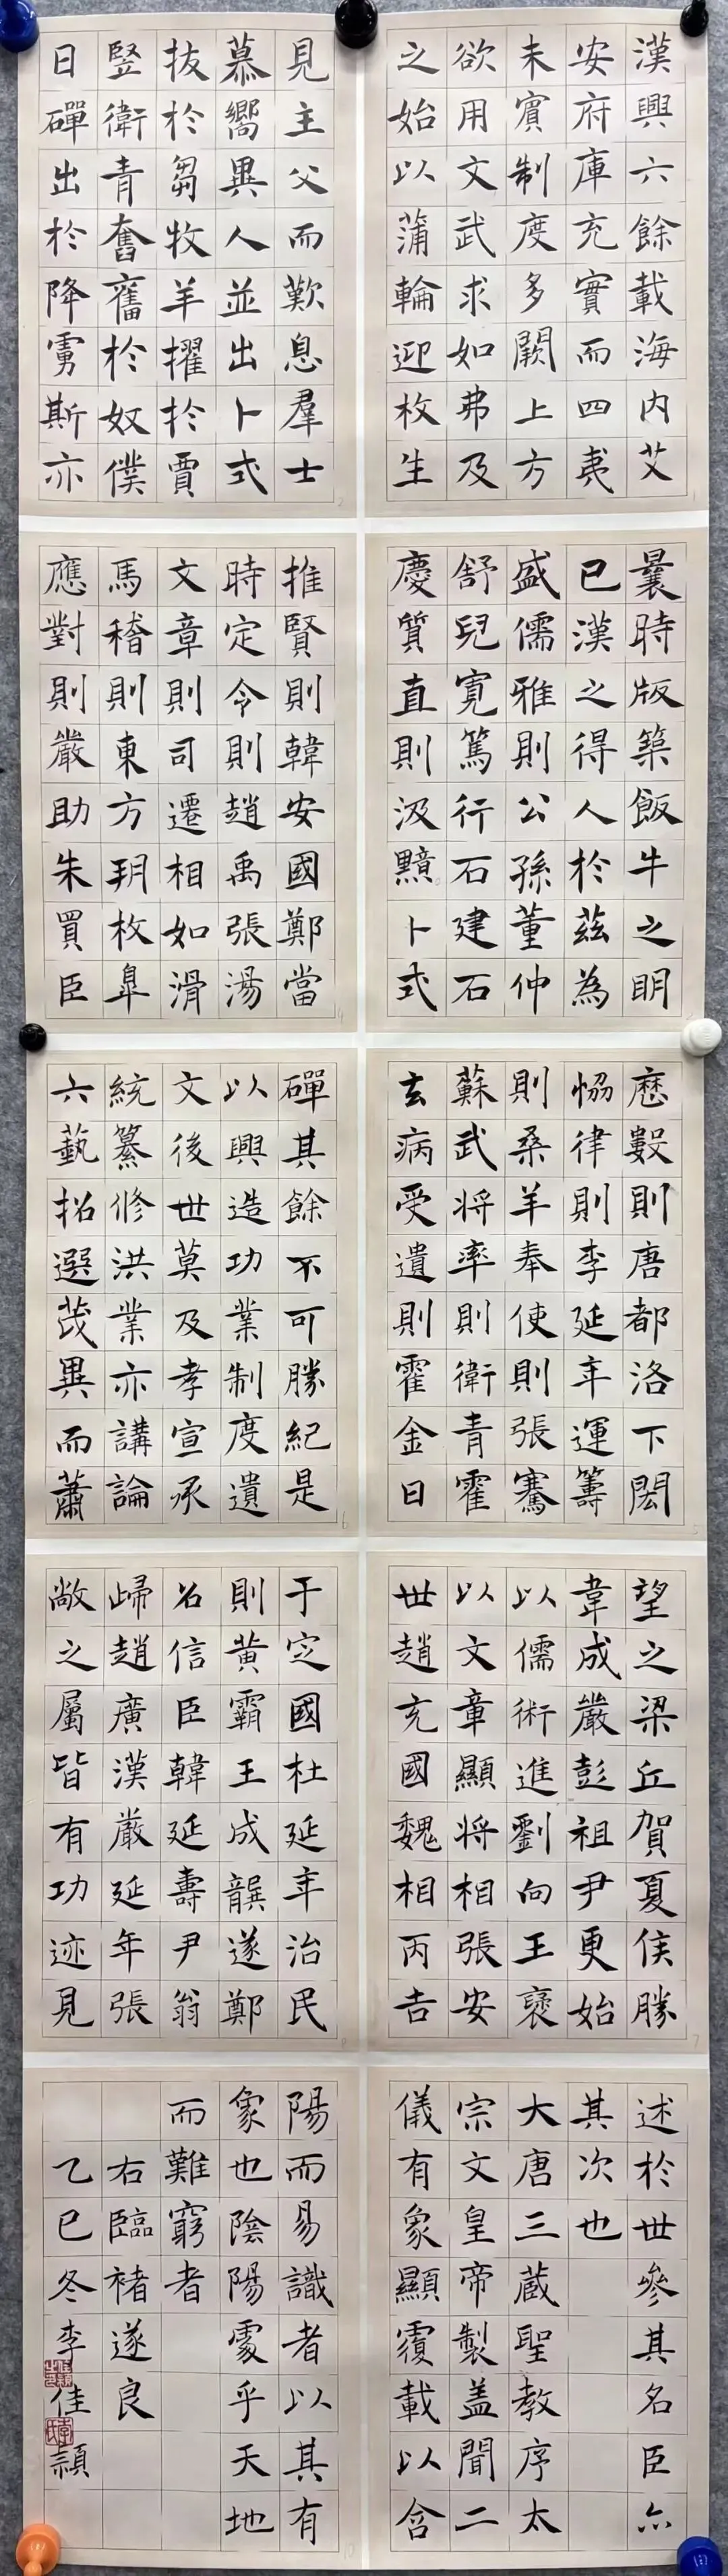 漢興六餘載海内艾
安府庫充實而四夷
未賓制度多闕上方
欲用文武求如弗及
之始以蒲輪迎枚生
見主父而歎息羣士
慕嚮異人並出卜式
拔於芻牧羊擢於賈
豎衛青奮舊於奴僕
日磾出於降虜斯亦
曩時版築飯牛之明
已漢之得人於茲為
盛儒雅則公孫董仲
舒兒寛篤行石建石
慶質直則汲黯卜式
推賢則韓安國鄭當
時定令則趙禹張湯
文章則司遷相如滑
馬稽則東方朔枚皐
應對則嚴助朱買臣
歷數則唐都洛下閎
恊律則李延年運籌
則桑羊奉使則張騫
蘇武将率則衛青霍
去病受遺則霍金日
磾其餘不可勝紀是
以興造功業制度遺
文後世莫及孝宣承
統纂修洪業亦講論
六藝招選茂異而蕭
望之梁丘賀夏侯勝
韋成嚴彭祖尹更始
以儒術進劉向王褒
以文章顯将相張安
世趙充國魏相丙吉
于定國杜延年治民
則黄霸王成龔遂鄭
名信臣韓延壽尹翁
歸趙廣漢嚴延年張
敞之屬皆有功迹見
述於世參其名臣亦
其次也
大唐三蔵聖教序太
宗文皇帝製盖聞二
儀有象顯覆載以含
陽而易識者以其有
象也陰陽處乎天地
而難窮者
右臨褚遂良
乙巳冬李佳頴